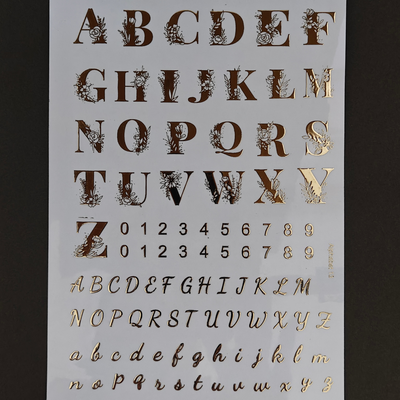 A B C D E F
G H I J K L M
N O P Q R S
T U V W X Y
Z 0 1 2 3 4 5 6 7 8 9
0 1 2 3 4 5 6 7 8 9
A B C D E F G H I J K L M
N O P Q R S T U V W X Y Z
a b c d e f g h i j k l m
n o p q r s t u v w x y z